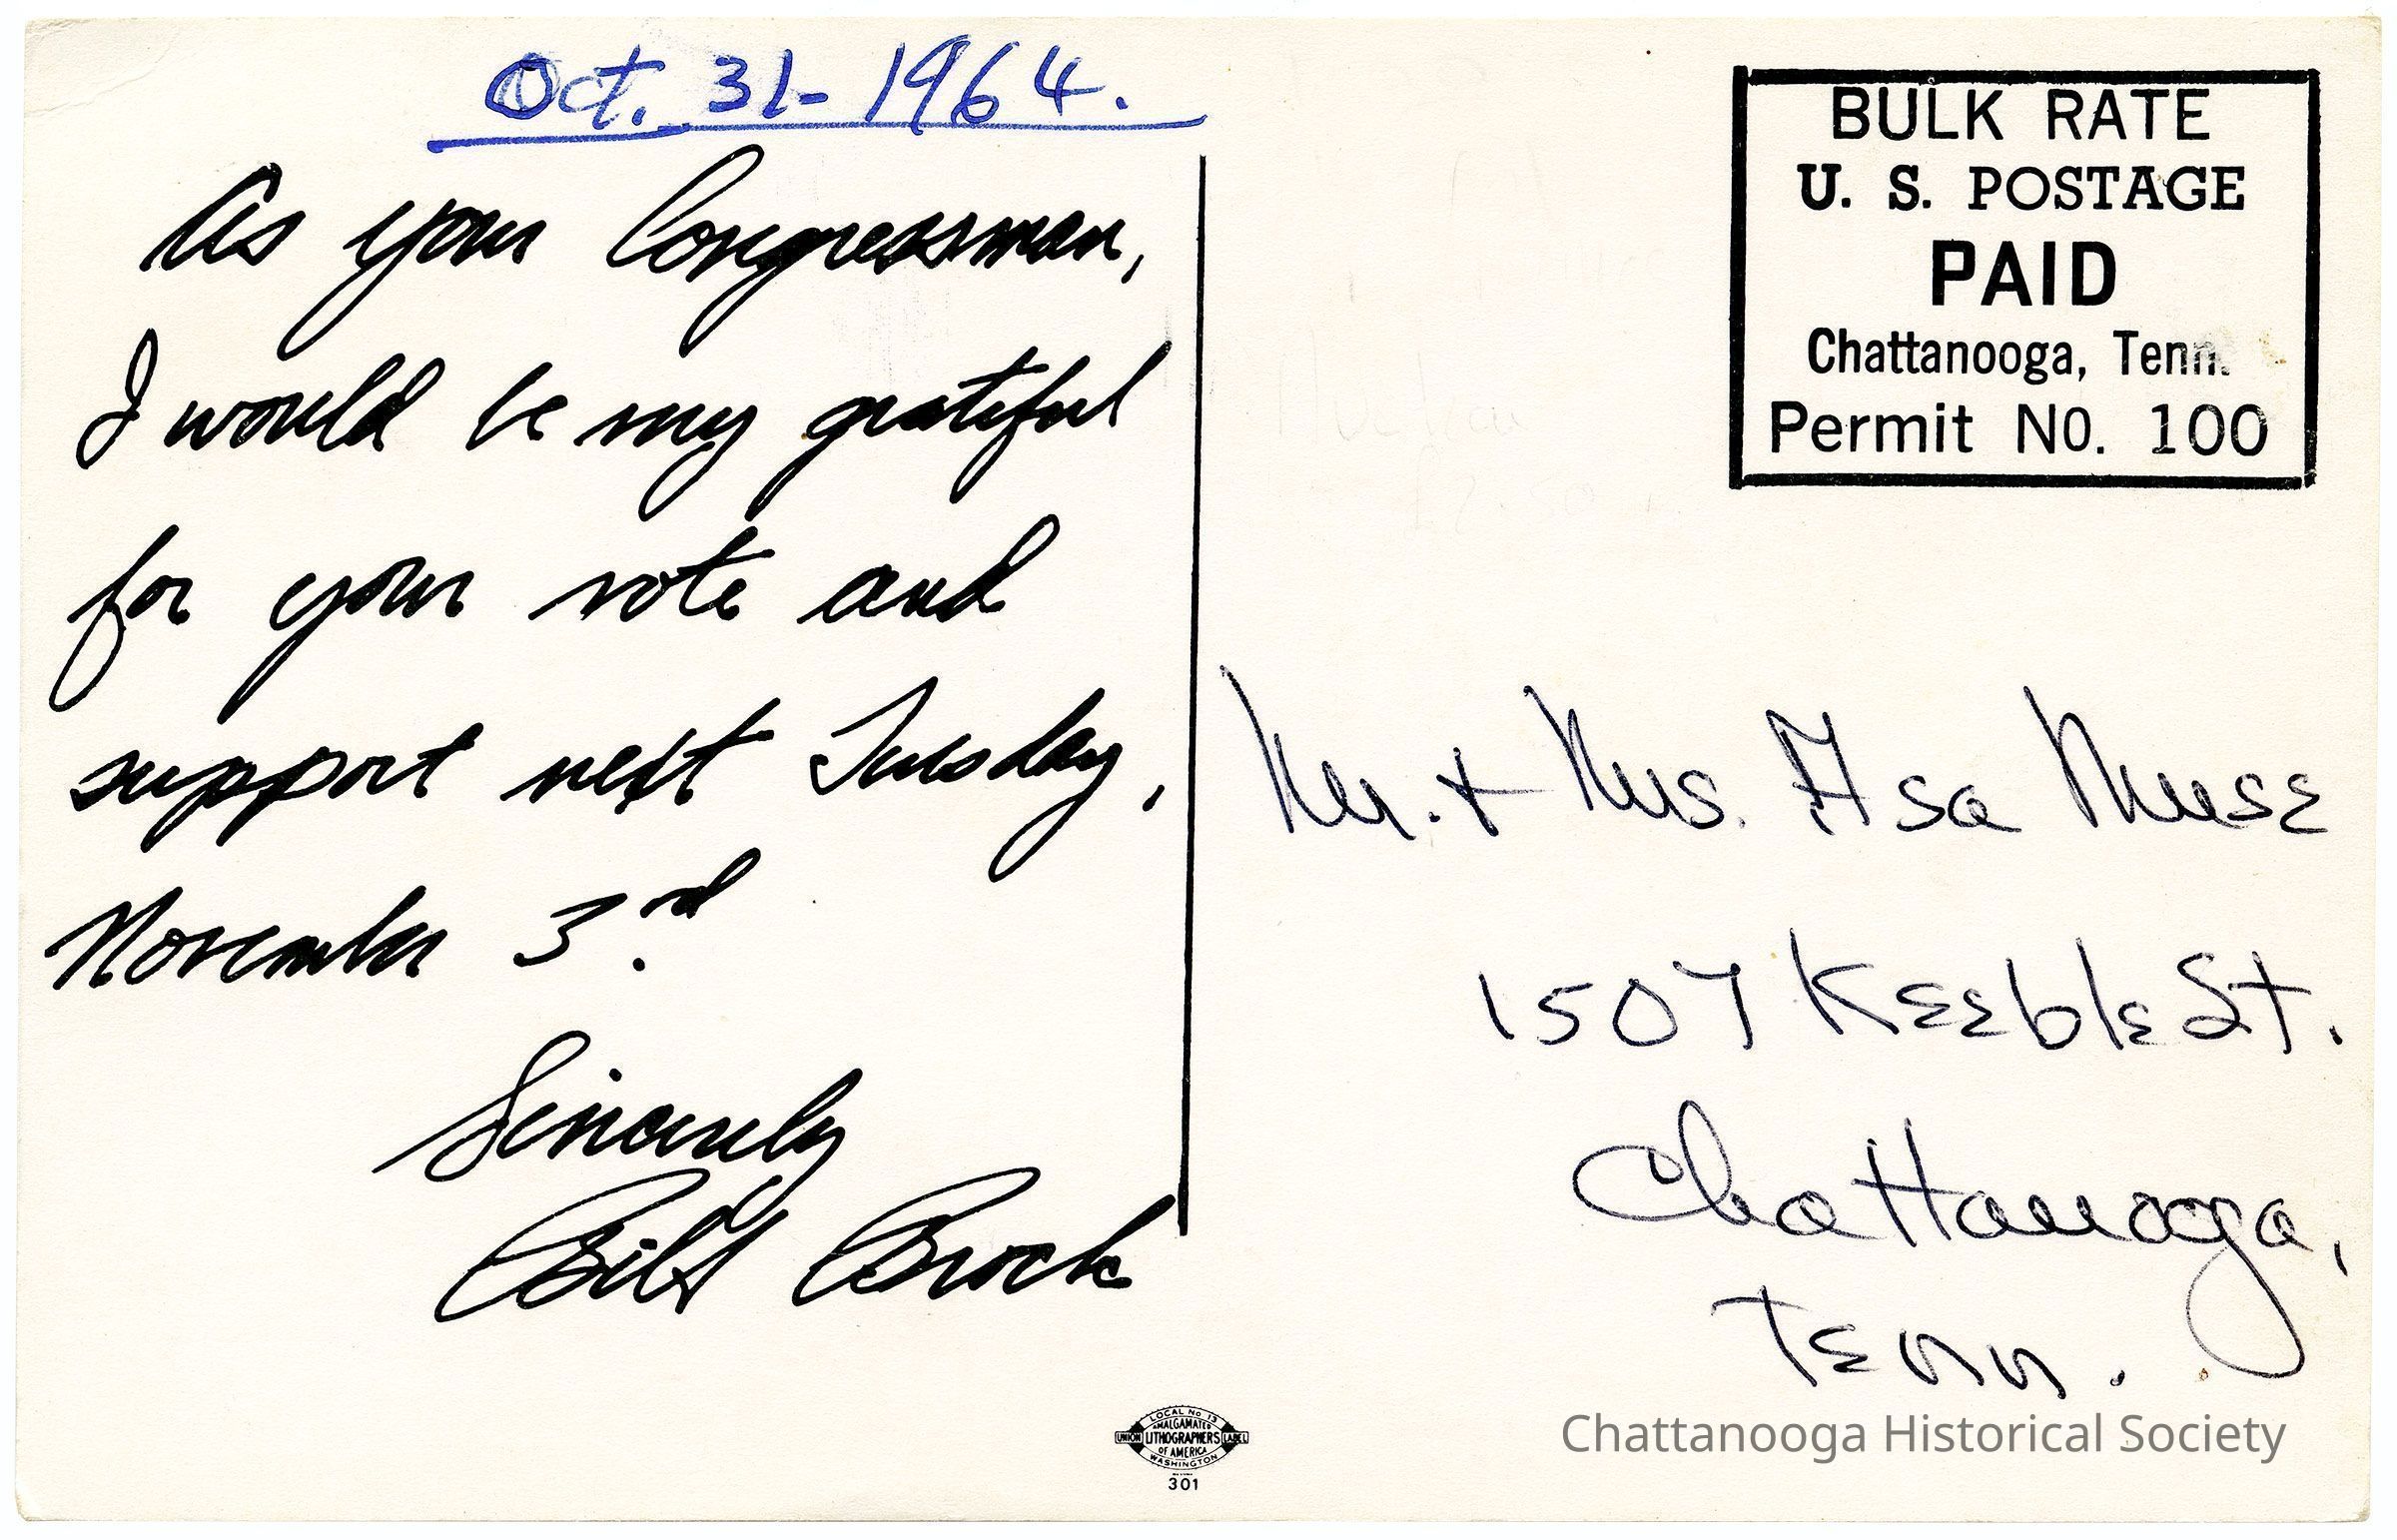 Oct. 31-1964.
As your Congressman,
I would be my grateful
for your vote and
support next Tuesday,
November 3rd.
Sincerely
Bill Brock
BULK RATE
U. S. POSTAGE
PAID
Chattanooga, Tenn.
Permit No. 100
Mr. + Mrs. Asa Muse
1507 Keeble St.
Chattanooga,
Tenn.
LOCAL No 13
AMALGAMATED
UNION LITHOGRAPHERS LABEL
OF AMERICA
WASHINGTON
301
Chattanooga Historical Society